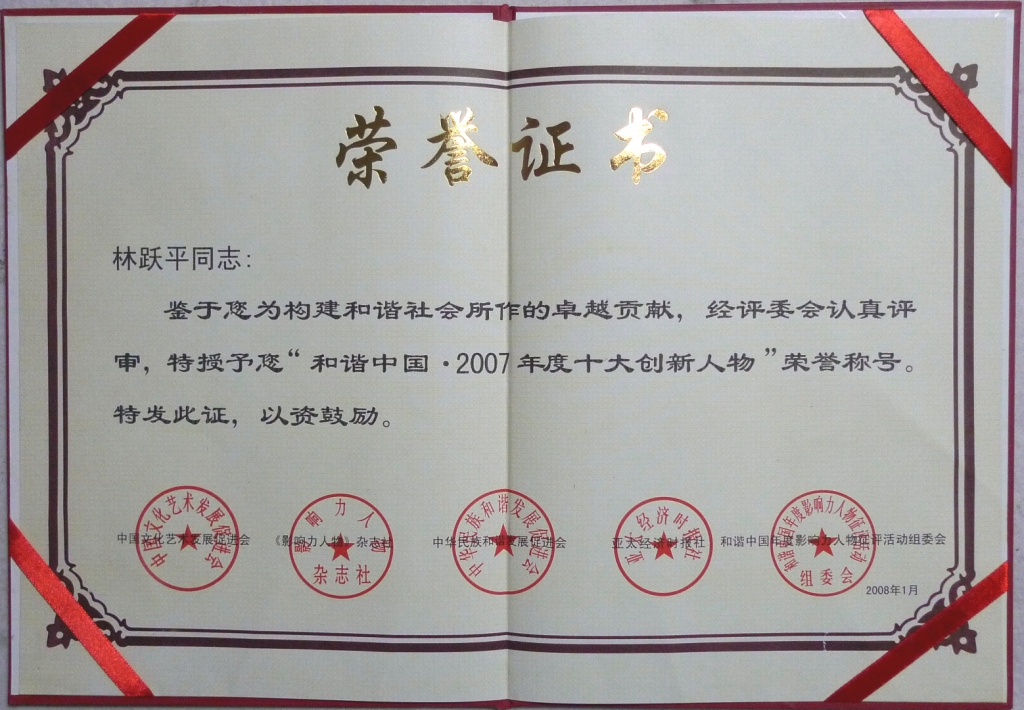 荣誉证书
林跃平同志:
鉴于您为构建和谐社会所作的卓越贡献，经评委会认真评
审，特授予您“和谐中国·2007年度十大创新人物”荣誉称号。
特发此证，以资鼓励。
中国文化艺术发展促进会 《影响力人物》杂志社 中华民族和谐发展促进会 亚太经济时报社 和谐中国年度影响力人物征评活动组委会
中国文化艺术发展促进会
影响力人物
杂志社
中华民族和谐发展促进会
亚太经济时报社
和谐中国年度影响力人物征评活动
组委会
2008年1月